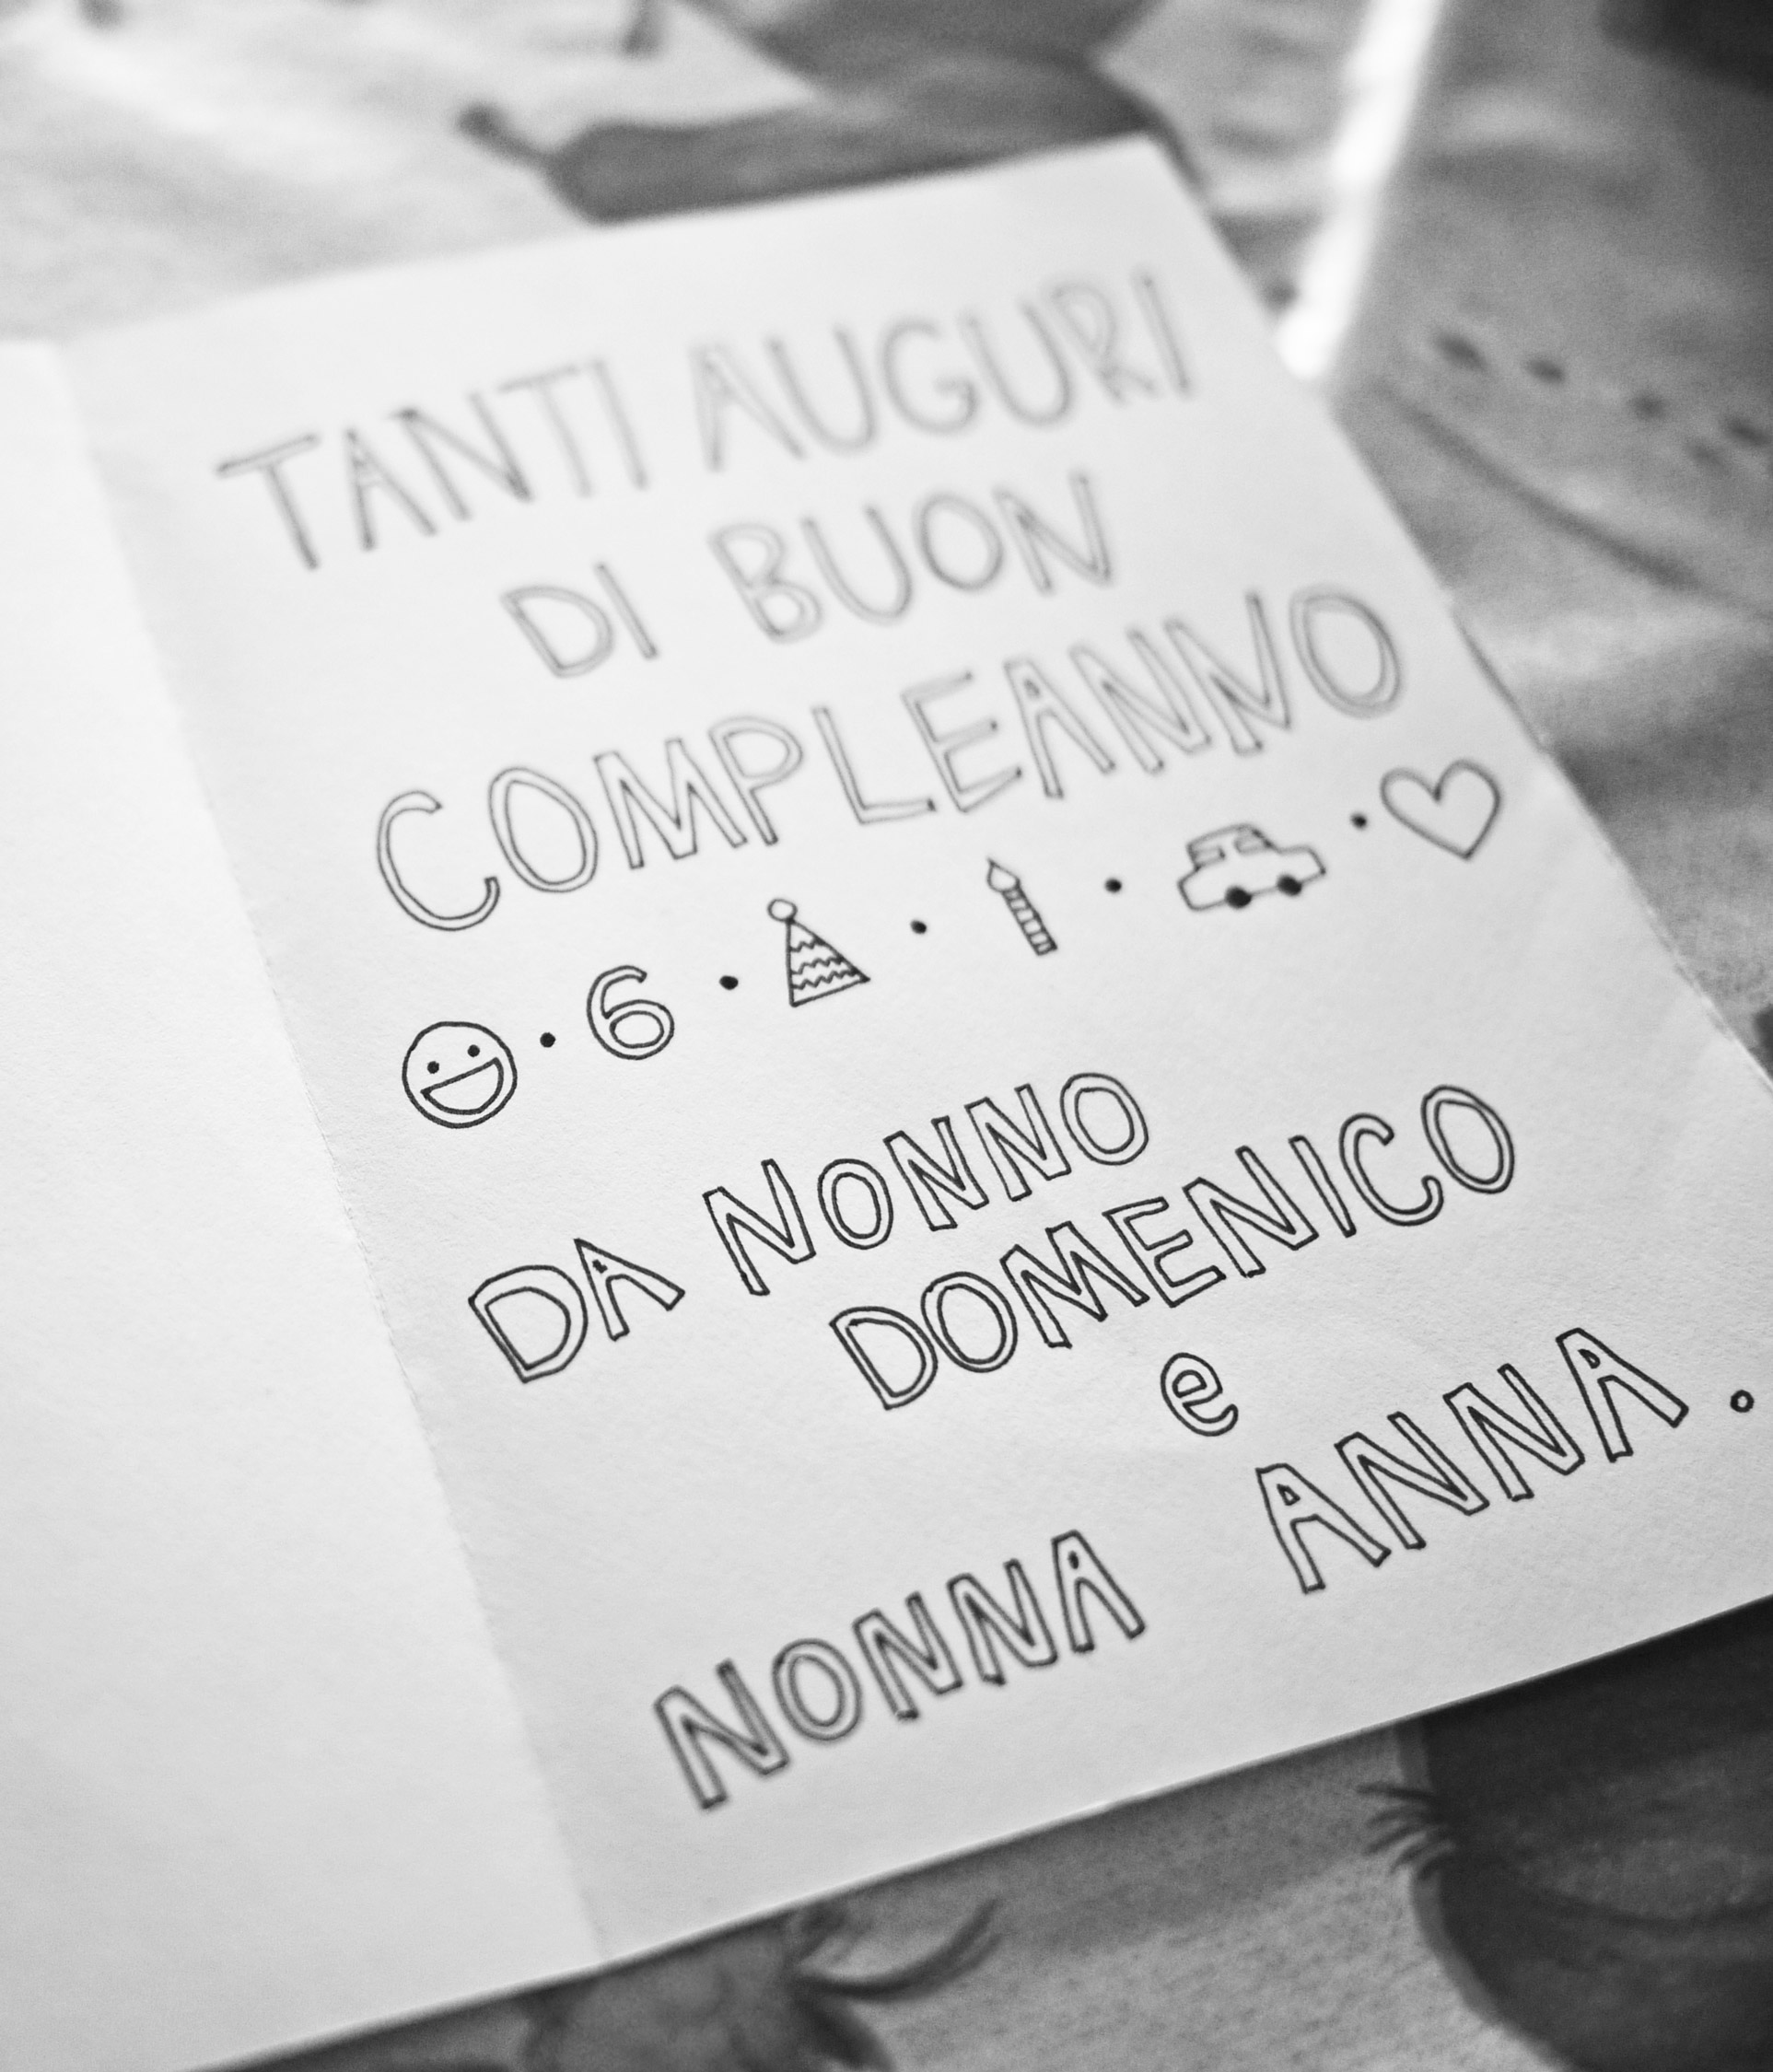 TANTI AUGURI
DI BUON
COMPLEANNO
· 6 · · · ·
DA NONNO
DOMENICO
e
NONNA ANNA.